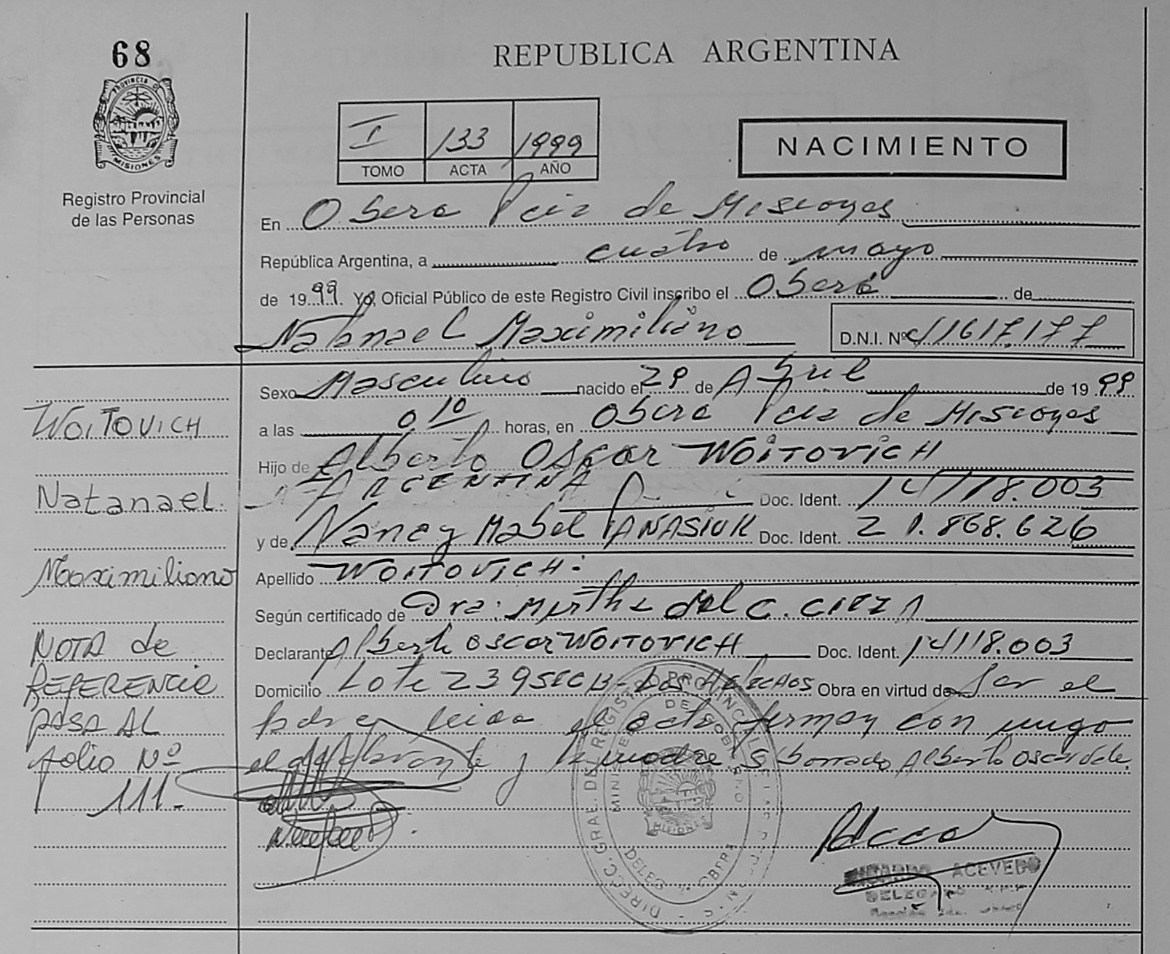 68
REPUBLICA ARGENTINA
PROVINCIA D MISIONES
Registro Provincial
de las Personas
I 133 1999
TOMO ACTA AÑO
NACIMIENTO
En Obera Pcia de Misiones
República Argentina, a cuatro de mayo
de 1999. Yo, Oficial Público de este Registro Civil inscribo el Oberá de
Natanael Maximiliano
D.N.I. Nº 41617.177
Sexo Masculino nacido el 29 de Abril de 1999
a las 0 10 horas, en Obera Pcia de Misiones
WOITOVICH
Hijo de Alberto Oscar WOITOVICH
Natanael.
ARGENTINA Doc. Ident. 14118.003
y de Nancy Mabel TANASIUK Doc. Ident. 21.868.626
Maximiliano
Apellido WOITOVICH:
Según certificado de Dra: Myrtha del C.
NOTA de
Declarante Alberto Oscar WOITOVICH Doc. Ident. 14118.003
REFERENCIA
Domicilio Lote 239 Los Helechos Obra en virtud de Ser el
PASA AL
padre leida el acta firman con migo
folio Nº
el y la madre S/borrado Alberto Oscar vale.
111.-
DIRECC. GRAL. DE REGISTRO PROVINCIAL DE LAS PERSONAS
MINISTERIO DE GOBIERNO
MISIONES
DELEG. OBERA
ACEVEDO